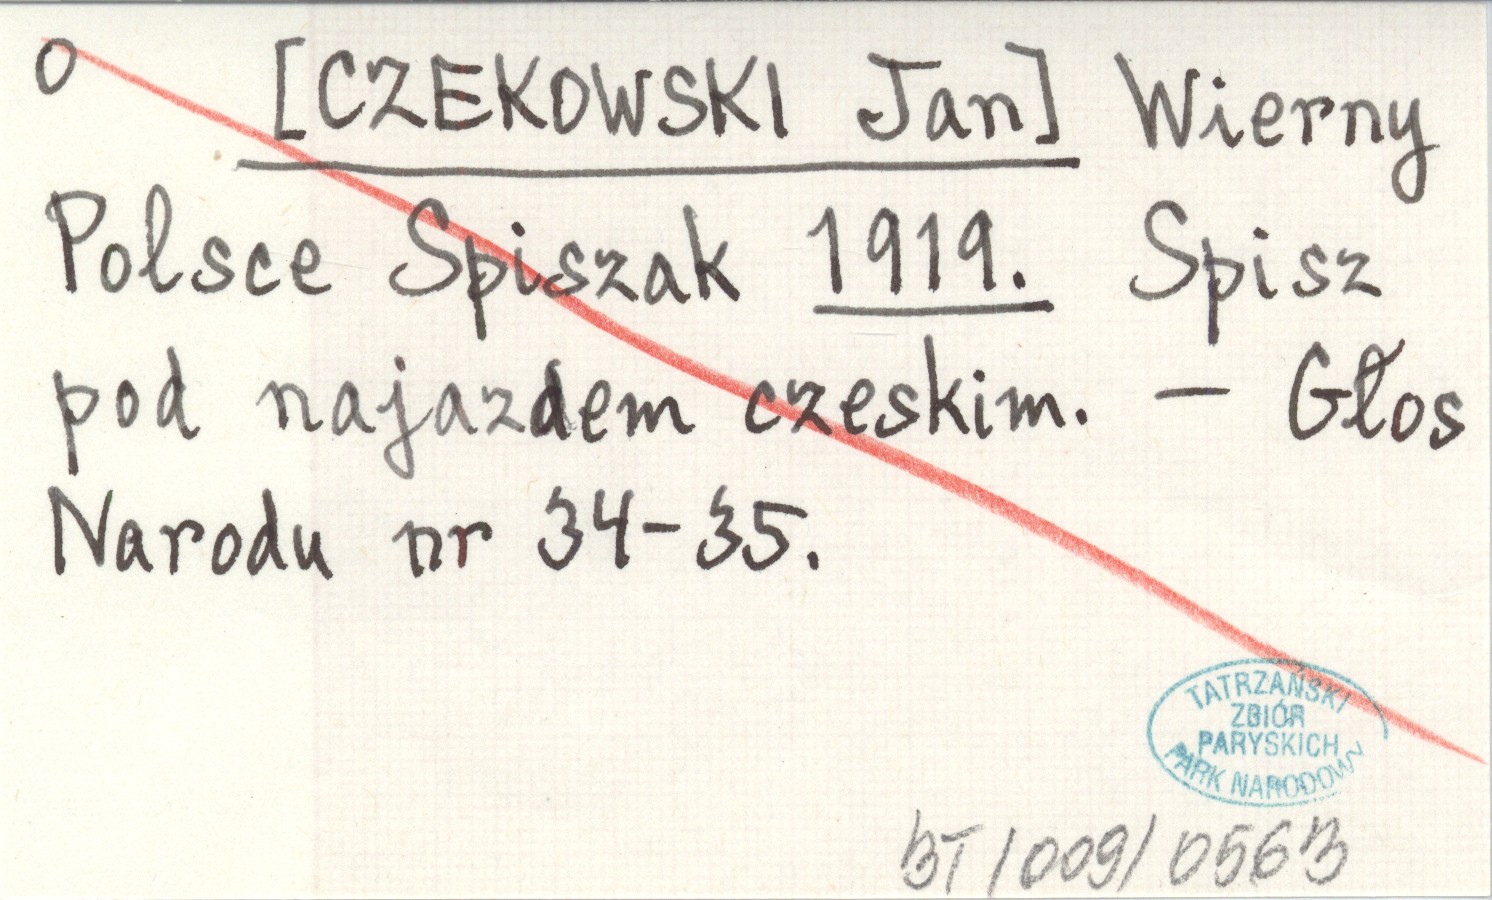 O [CZEKOWSKI Jan] Wierny
Polsce Spiszak 1919. Spisz
pod najazdem czeskim. – Głos
Narodu nr 34-35.
TATRZAŃSKI
ZBIÓR
PARYSKICH
PARK NARODOWY
BT/009/0563